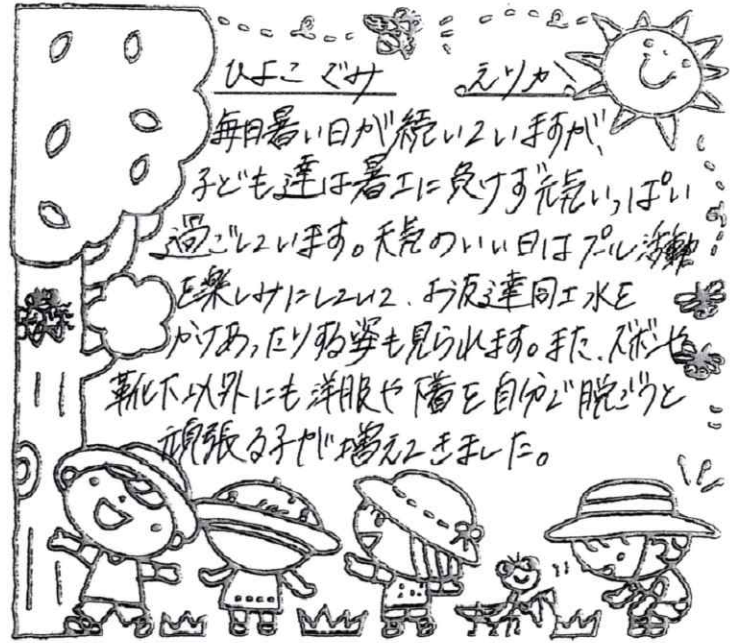 ひよこぐみ えりか
毎日暑い日が続いていますが、
子ども達は暑さに負けず元気いっぱい
過ごしています。天気のいい日はプール活動
を楽しみにしていて、お友達同士水を
かけあったりする姿も見られます。また、ズボンや
靴下以外にも洋服や下着を自分で脱ごうと
頑張る子が増えてきました。